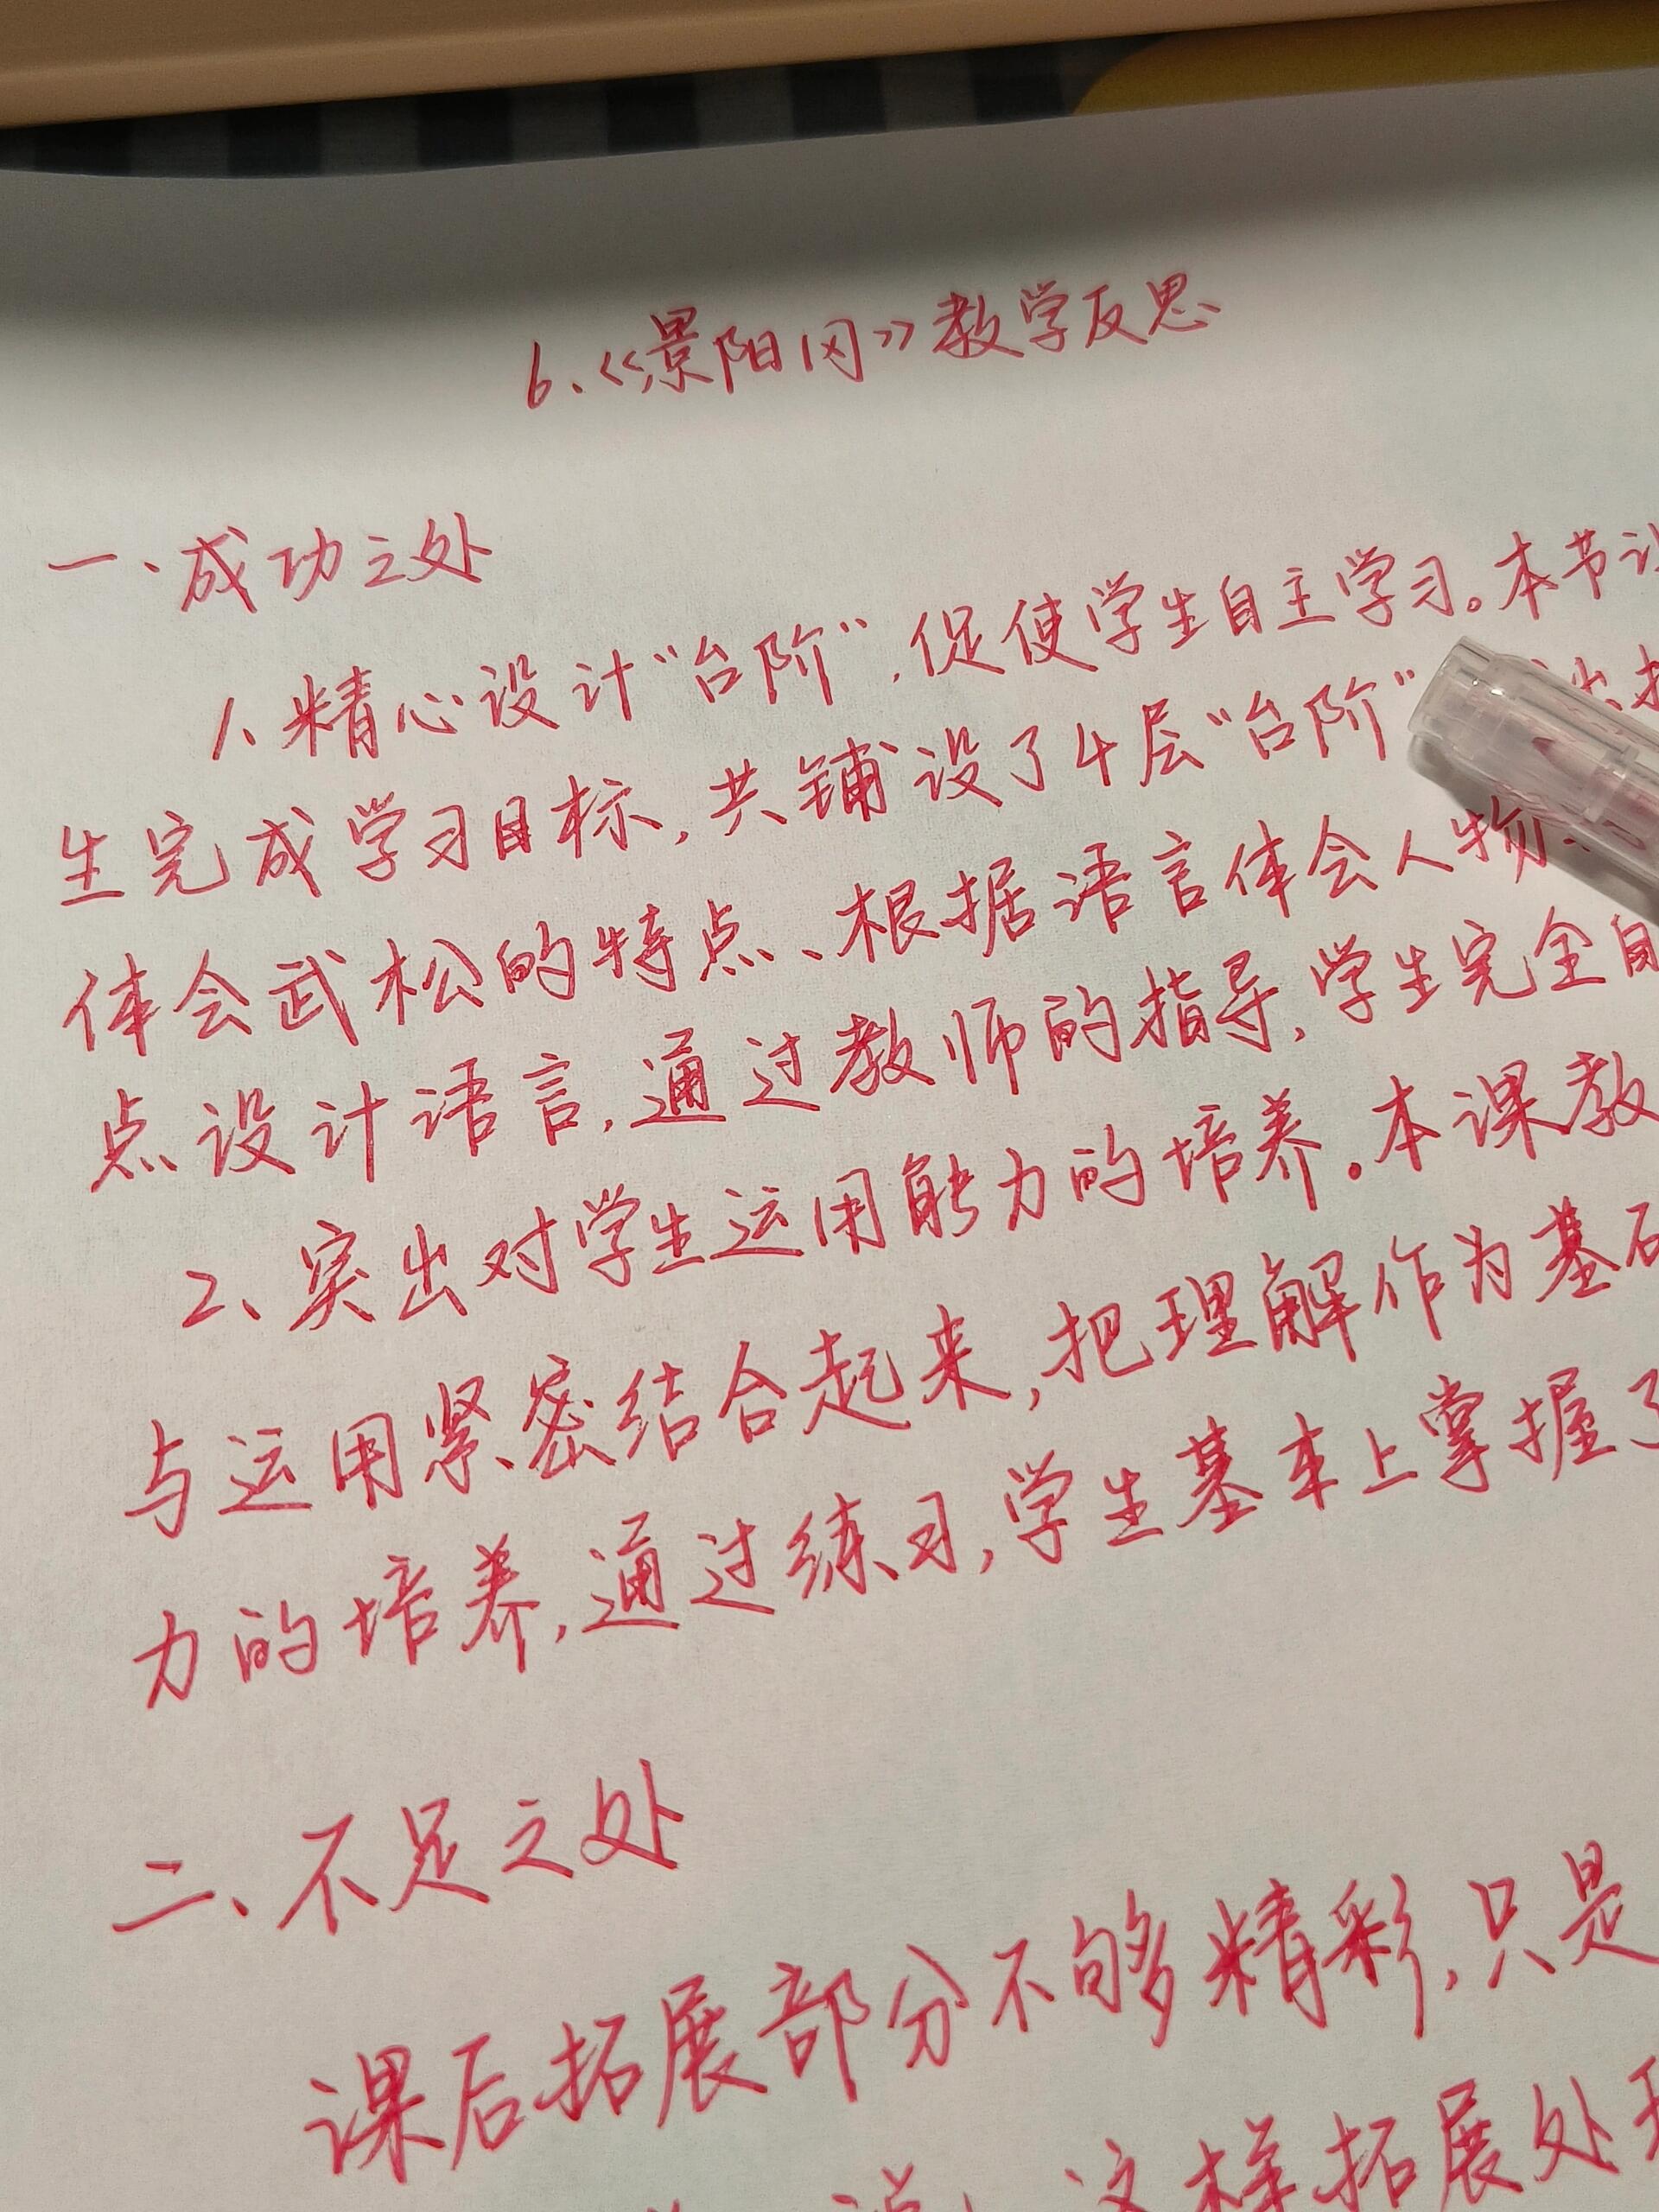 6、《景阳冈》教学反思
一、成功之处
1、精心设计“台阶”，促使学生自主学习。本节
生完成学习目标，共铺设了4层“台阶”
体会武松的特点、根据语言体会人物
点设计语言，通过教师的指导，学生完全自
2、突出对学生运用能力的培养。本课教
与运用紧密结合起来，把理解作为基
力的培养，通过练习，学生基本上掌握了
二、不足之处
课后拓展部分不够精彩，只是
说，这样拓展处